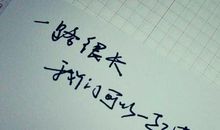 一路很长
我们可以一起